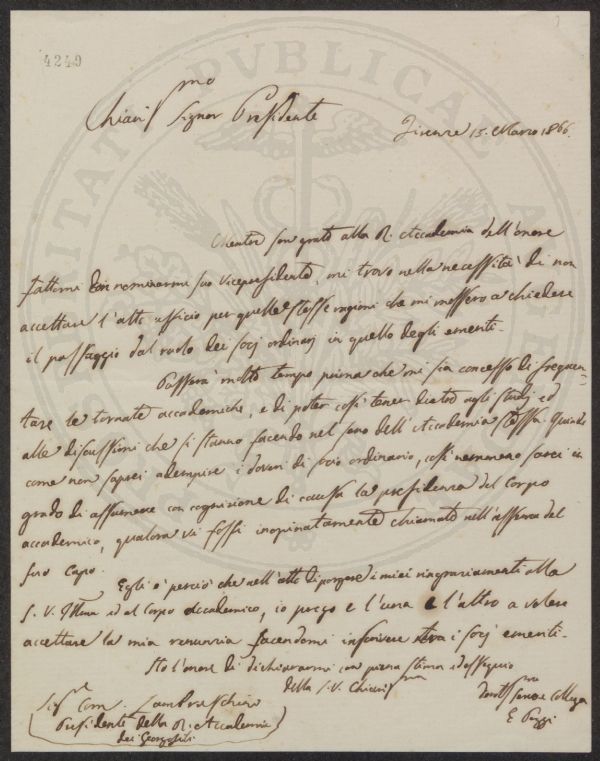 4249
Chiarissmo Signor Presidente
Firenze 15. Marzo 1866.
Mentre son grato alla R. Accademia dell'onore
fattomi nominarmi suo Vicepresidente, mi trovo nella necessità di non
accettare l'alto ufficio per quelle stesse ragioni che mi mossero a chiedere
il passaggio dal ruolo dei socj ordinarj in quello degli emeriti.
Passerà molto tempo prima che mi sia concesso di frequen
tare le tornate accademiche, e di poter così tener dietro agli studj ed
alle discussioni che si stanno facendo nel seno dell'Accademia stessa. Quindi
come non saprei adempire i doveri di socio ordinario, così nemmeno sarei in
grado di assumere con cognizione di causa la presidenza del Corpo
accademico, qualora vi fossi inopinatamente chiamato nell'assenza del
suo Capo.
Egli è perciò che nell'atto di porgere i miei ringraziamenti alla
S. V. Illma ed al Corpo Accademico, io prego e l'una e l'altro a volere
accettare la mia renunzia facendomi inscrivere tra i socj emeriti.
Ho l'onore di dichiararmi con piena stima ed ossequio
della S. V. Chiarissma
Sigr Com. Lambruschini
Presidente della R. Accademia
dei Georgofili
Devotssmo Collega
E Poggi
PVBLICAE